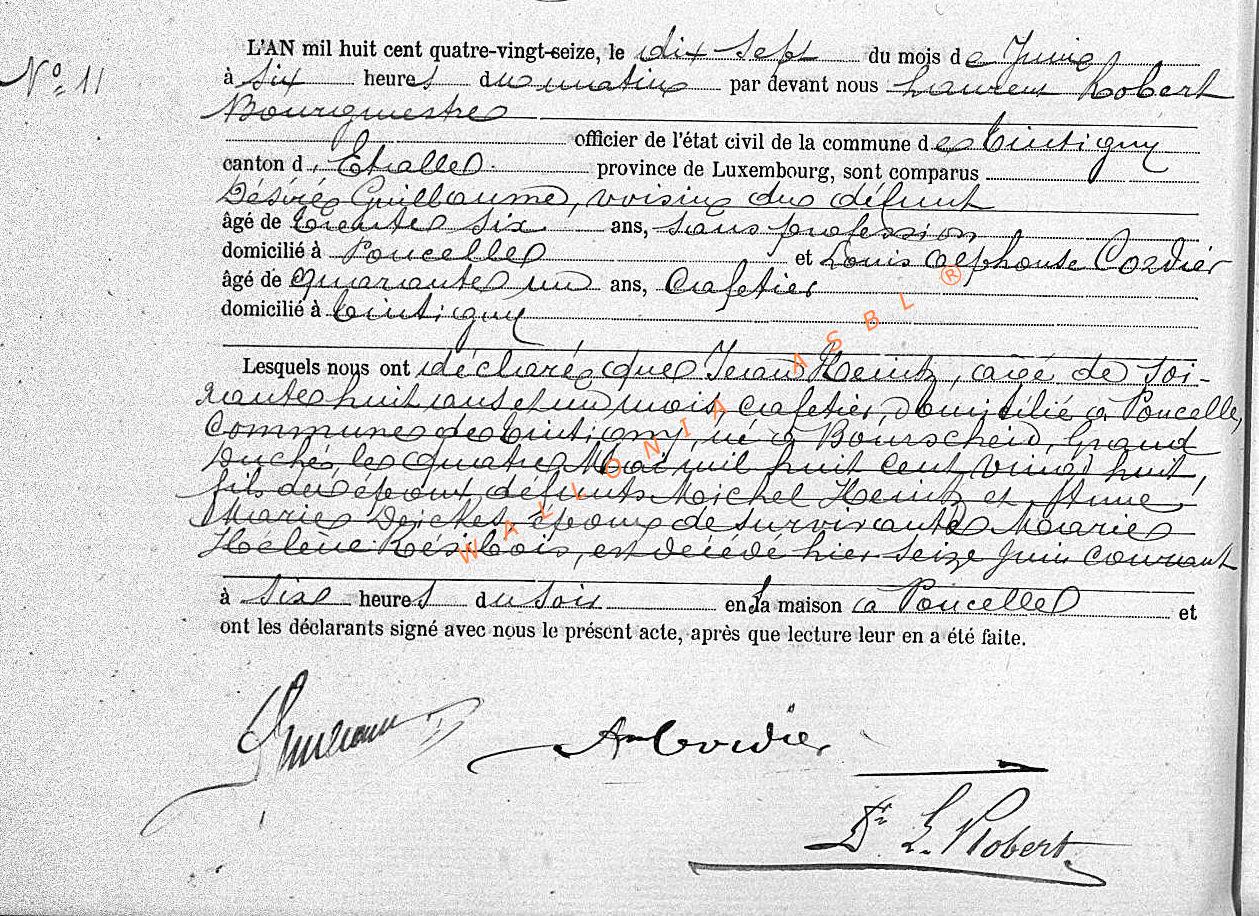 N° 11
L'AN mil huit cent quatre-vingt-seize, le dix sept du mois de Juin
à six heures du matin par devant nous Laurent Robert
Bourgmestre
officier de l'état civil de la commune de Tintigny
canton d'Etalle province de Luxembourg, sont comparus
Désiré Guillaume, voisin du défunt
âgé de trente six ans, sans profession
domicilié à Poncelle et Louis Alphonse Cordier
âgé de quarante un ans, Cafetier
domicilié à Tintigny
Lesquels nous ont déclaré que Jean Heintz, agé de soi-
xante huit ans et un mois, cafetier, domicilié à Poncelle,
Commune de Tintigny, né à Bourscheid, Grand
Duché, le quatre Mai mil huit cent vingt huit,
fils des époux défunts Michel Heintz et Anne
Marie époux de survivante Marie
Hélène Résibois, est décédé hier seize Juin courant
à six heures du soir en sa maison à Poncelle et
ont les déclarants signé avec nous le présent acte, après que lecture leur en a été faite.
WALLONIA ASBL ®
Guillaume D
A Cordier
Dr L. Robert